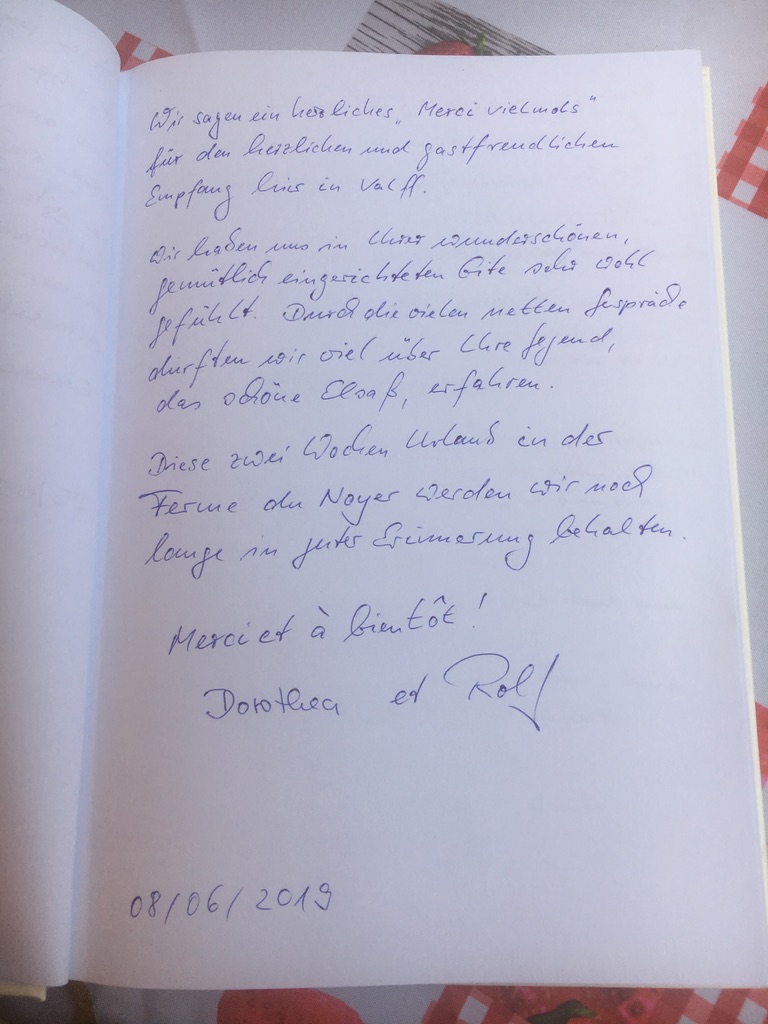 Wir sagen ein herzliches „Merci vielmols“
für den herzlichen und gastfreundlichen
Empfang hier in Valff.
Wir haben uns in Ihrer wunderschönen,
gemütlich eingerichteten Gite sehr wohl
gefühlt. Durch die vielen netten Gespräche
durften wir viel über Ihre Gegend,
das schöne Elsaß, erfahren.
Diese zwei Wochen Urlaub in der
Ferme du Noyer werden wir noch
lange in guter Erinnerung behalten.
Merci et à bientôt!
Dorothea et Rolf
08/06/2019